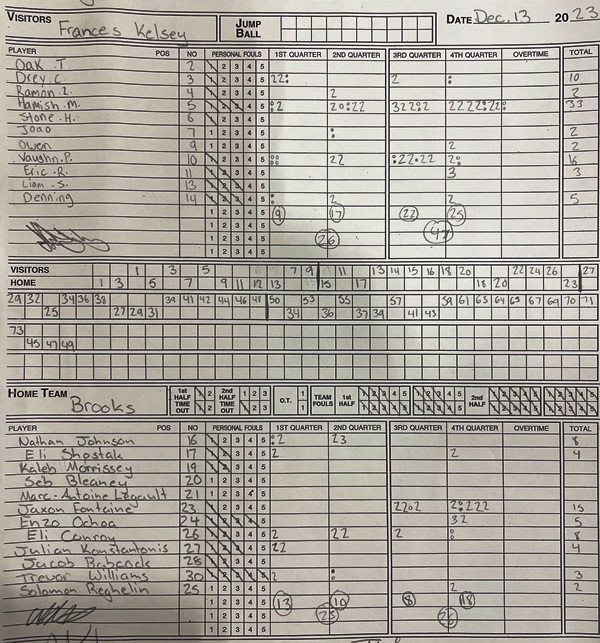 VISITORS Frances Kelsey JUMP BALL DATE Dec. 13 2023
PLAYER POS NO PERSONAL FOULS 1ST QUARTER 2ND QUARTER 3RD QUARTER 4TH QUARTER OVERTIME TOTAL
Oak T 2 1 2 3 4 5
Drey C. 3 1 2 3 4 5 22: 2 : 10
Ramon Z. 4 1 2 3 4 5 2 2
Hamish M. 5 1 2 3 4 5 33
Stone H. 6 1 2 3 4 5
Joao 7 1 2 3 4 5 : 2
Owen 9 1 2 3 4 5 2 2
Vaughn P. 10 1 2 3 4 5 22 :22.22 16
Eric R. 11 1 2 3 4 5 3 3
Liam S. 13 1 2 3 4 5
Denning 14 1 2 3 4 5 : 2 2 5
1 2 3 4 5 9 17 22 25
1 2 3 4 5
1 2 3 4 5 26 47
VISITORS 1 3 5 7 9 9 11 13 14 15 16 18 20 22 24 26 27
HOME 1 3 5 7 9 11 12 13 15 17 18 20 23
29 32 34 36 38 39 41 42 44 46 48 50 53 55 57 59 61 63 64 65 67 69 70 71
25 27 29 31 34 36 37 39 41 43
73
45 47 49
HOME TEAM Brooks 1ST HALF TIME OUT 1 2 2ND HALF TIME OUT 1 2 3 O.T. 1 TEAM FOULS 1ST HALF 1 2 3 4 5 2ND HALF 1 2 3 4 5
PLAYER POS NO PERSONAL FOULS 1ST QUARTER 2ND QUARTER 3RD QUARTER 4TH QUARTER OVERTIME TOTAL
Nathan Johnson 16 1 2 3 4 5 :2 23 8
Eli Shostak 17 1 2 3 4 5 2 2 4
Kaleb Morrissey 19 1 2 3 4 5
Seb Bleaney 20 1 2 3 4 5
Marc-Antoine Legault 21 1 2 3 4 5
Jaxon Fontaine 23 1 2 3 4 5 15
Enzo Ochoa 24 1 2 3 4 5 32 5
Eli Conroy 26 1 2 3 4 5 2 22 2 8
Julian Konstantonis 27 1 2 3 4 5 22 4
Jacob Babcock 28 1 2 3 4 5
Trevor Williams 30 1 2 3 4 5 2 : 3
Solomon Reghelin 25 1 2 3 4 5 2 2
1 2 3 4 5 13 10 8 18
1 2 3 4 5 23 26
1 2 3 4 5